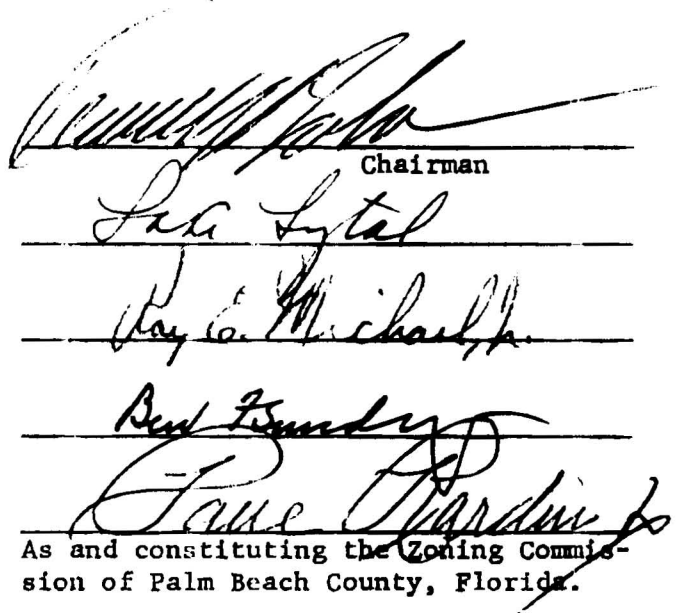 Chairman
Lake Lytal
Roy E. Michael, Jr.
Bud Bundy
Paul Rardin Jr
As and constituting the Zoning Commis-
sion of Palm Beach County, Florida.